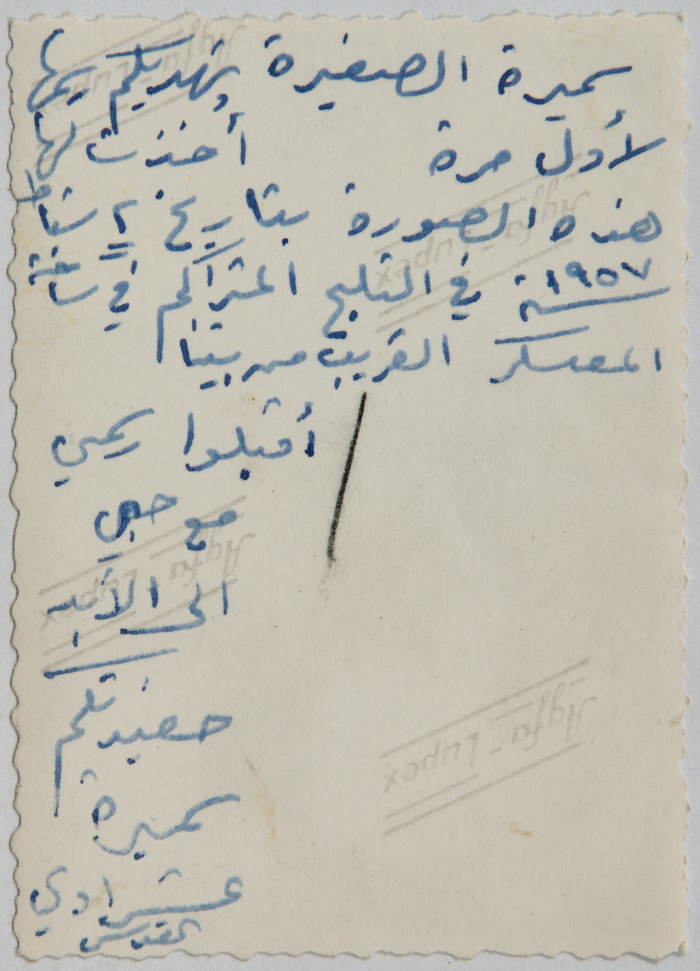 سميرة الصغيرة تهديكم رسمها
لأول مرة أخذت لها
هذه الصورة بتاريخ ٢ شباط
سنة ١٩٥٧ في الثلج المتراكم في ساحة
المعسكر القريب من بيتنا
أقبلوا رسمي
مع حبي
الى الأبد
حفيدتكم
سميرة
القدس
Agfa-Lupex
Agfa-Lupex
Agfa-Lupex
Agfa-Lupex